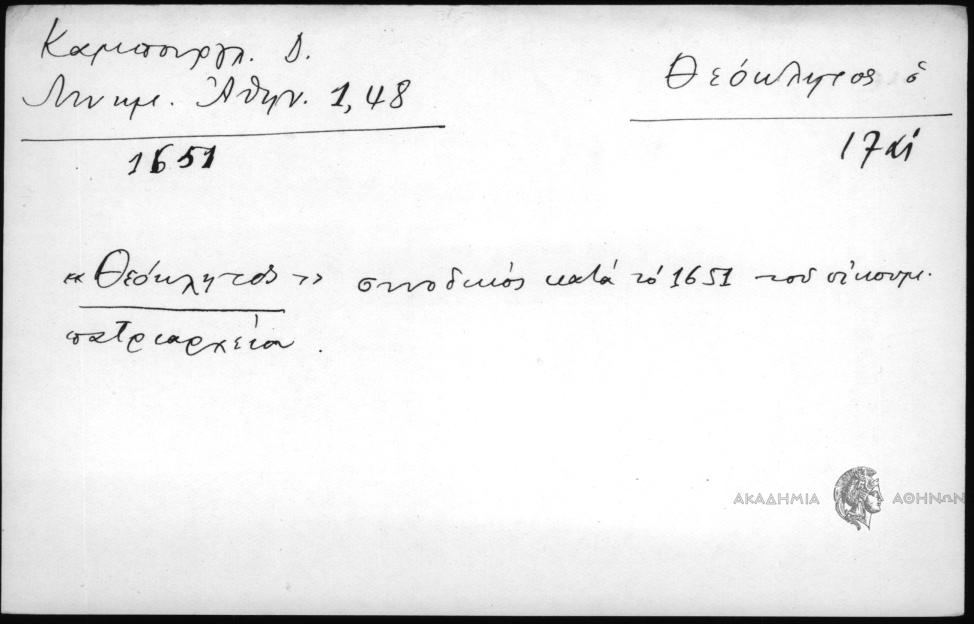 Καμπουργλ. Δ.
Μνημ. Ἀθην. 1,48
1651
Θεόκλητος ὁ
17 αἰ
«Θεόκλητος» συνοδικός κατά τό 1651 τοῦ οἰκουμ.
πατριαρχείου.
ΑΚΑΔΗΜΙΑ ΑΘΗΝΩΝ